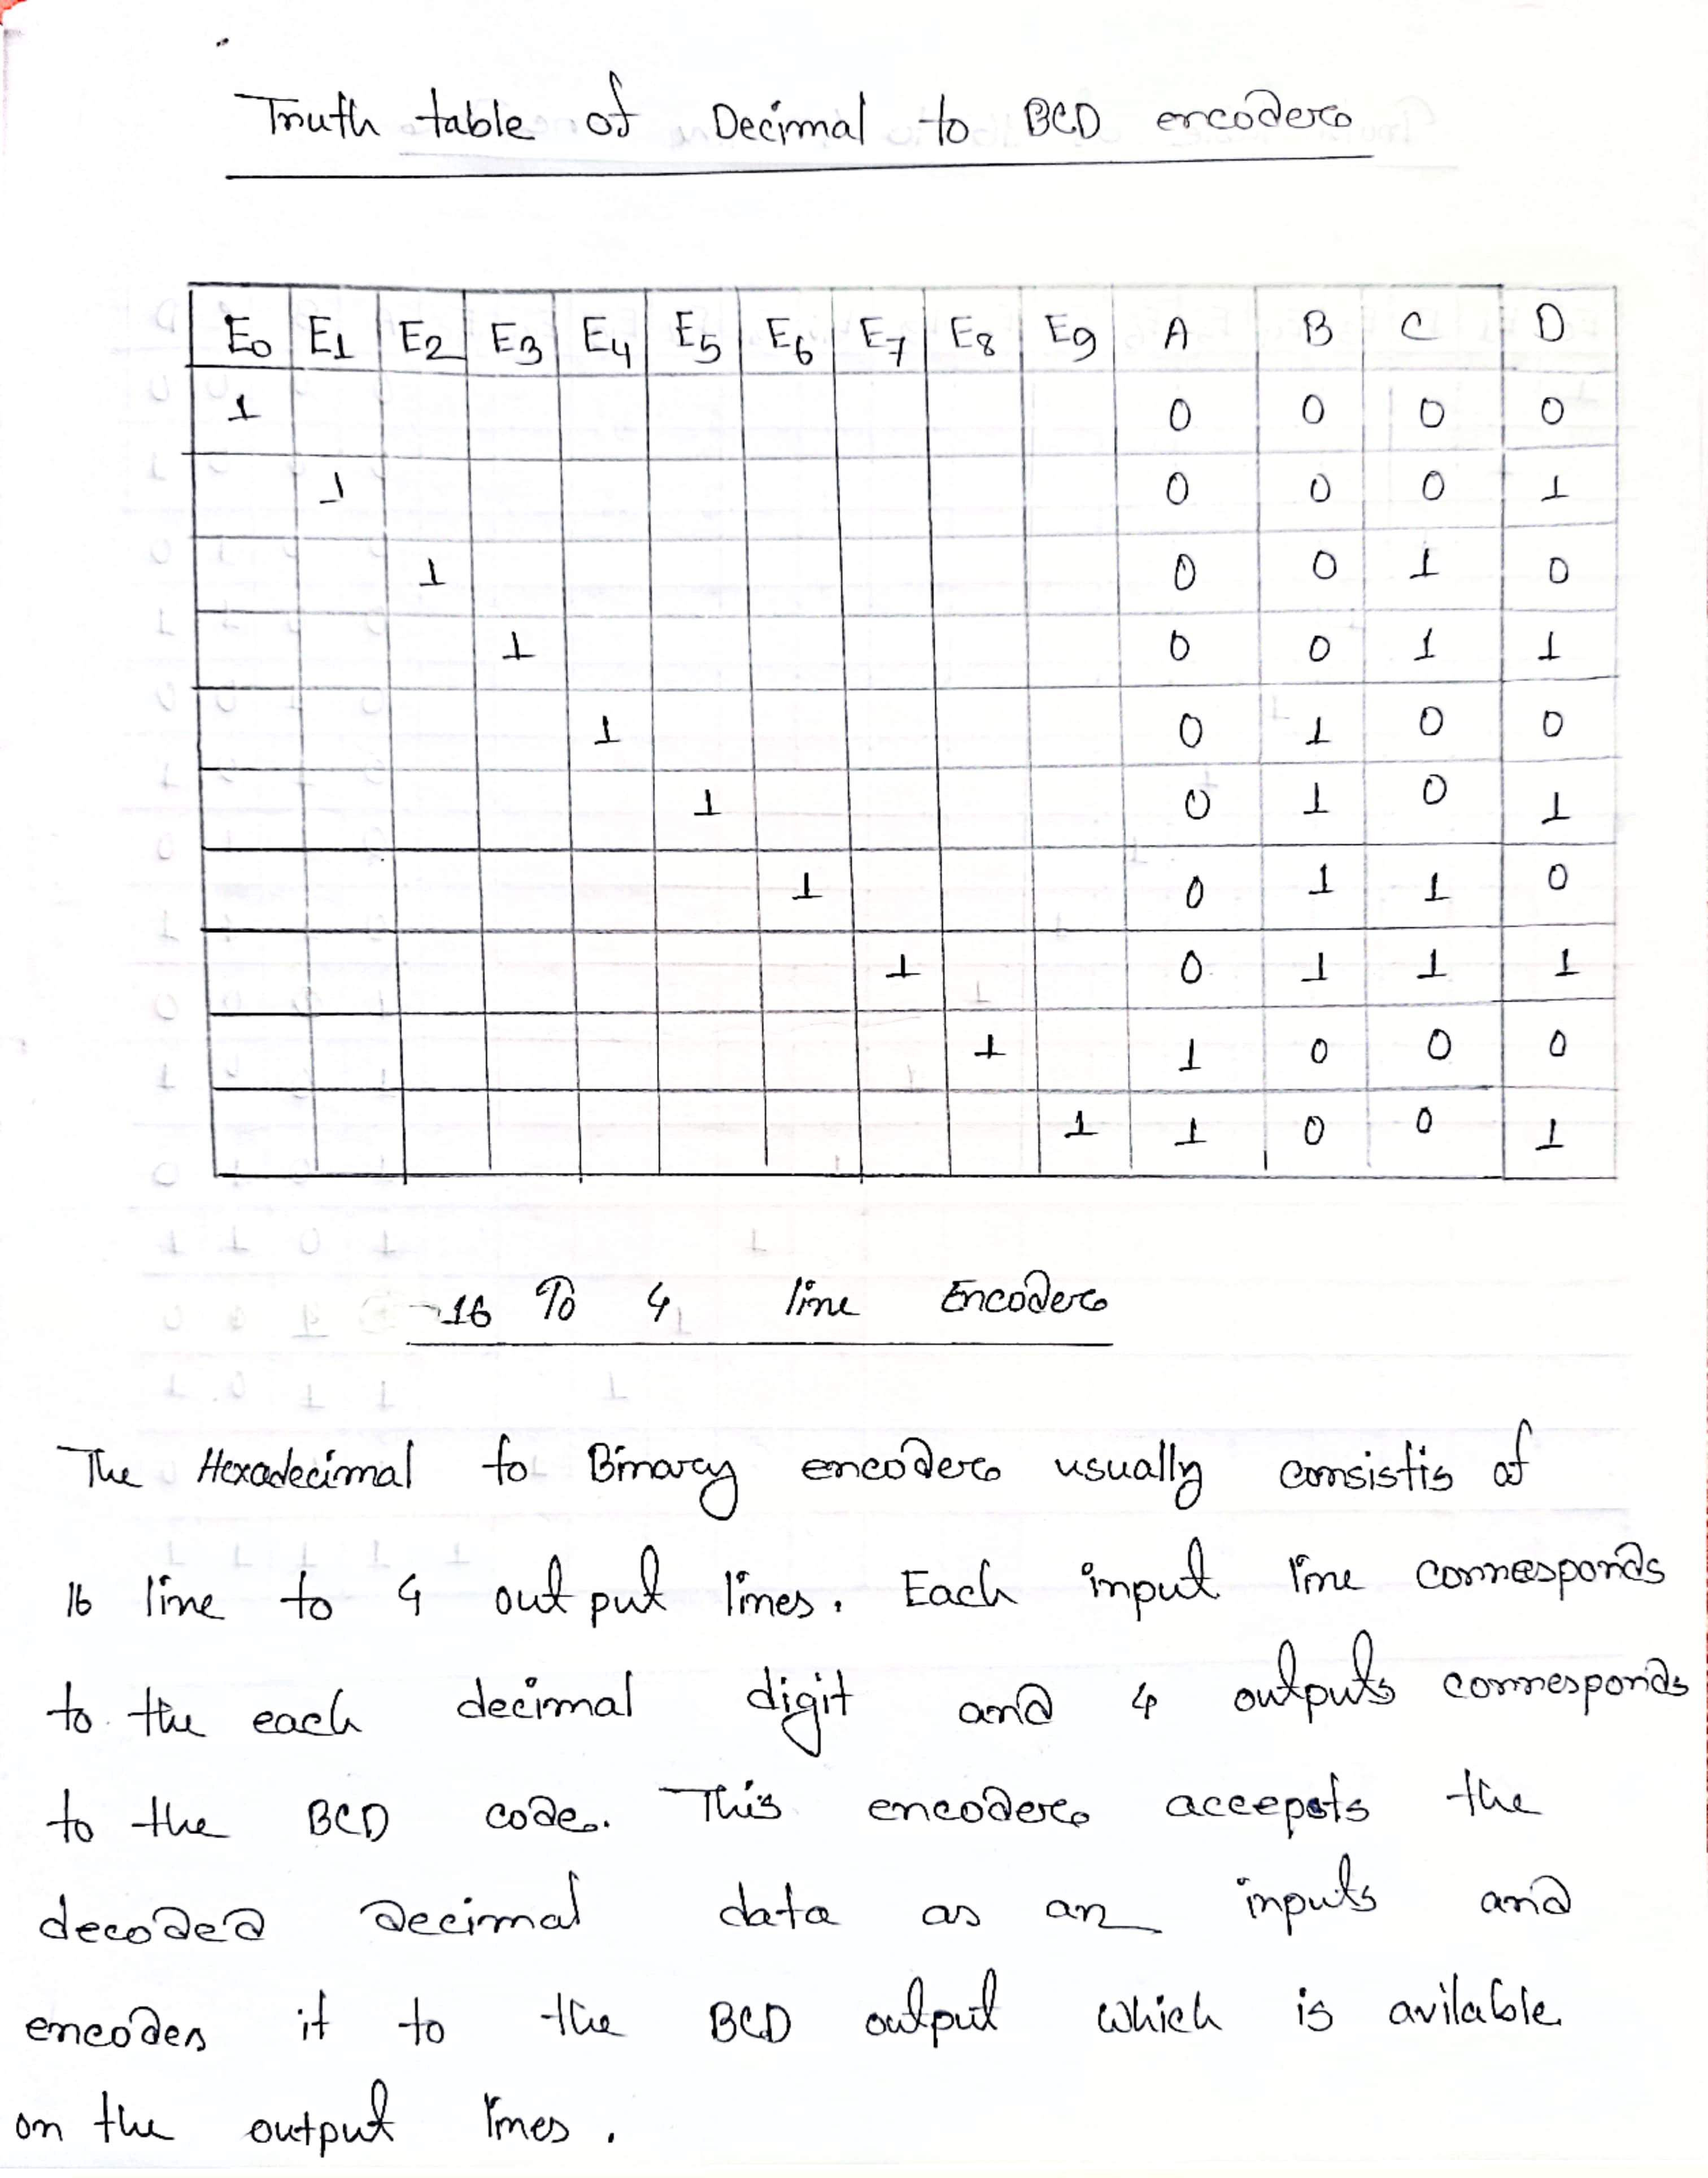 Truth table of Decimal to BCD encoder
E0 E1 E2 E3 E4 E5 E6 E7 E8 E9 A B C D
1 0 0 0 0
1 0 0 0 1
1 0 0 1 0
1 0 0 1 1
1 0 1 0 0
1 0 1 0 1
1 0 1 1 0
1 0 1 1 1
1 1 0 0 0
1 1 0 0 1
16 To 4 line Encoder
The Hexadecimal to Binary encoder usually consistis of
16 line to 4 output lines. Each input line corresponds
to the each decimal digit and 4 outputs corresponds
to the BCD code. This encoder accepsts the
decoded decimal data as an inputs and
encodes it to the BCD output which is avilable
on the output lines.